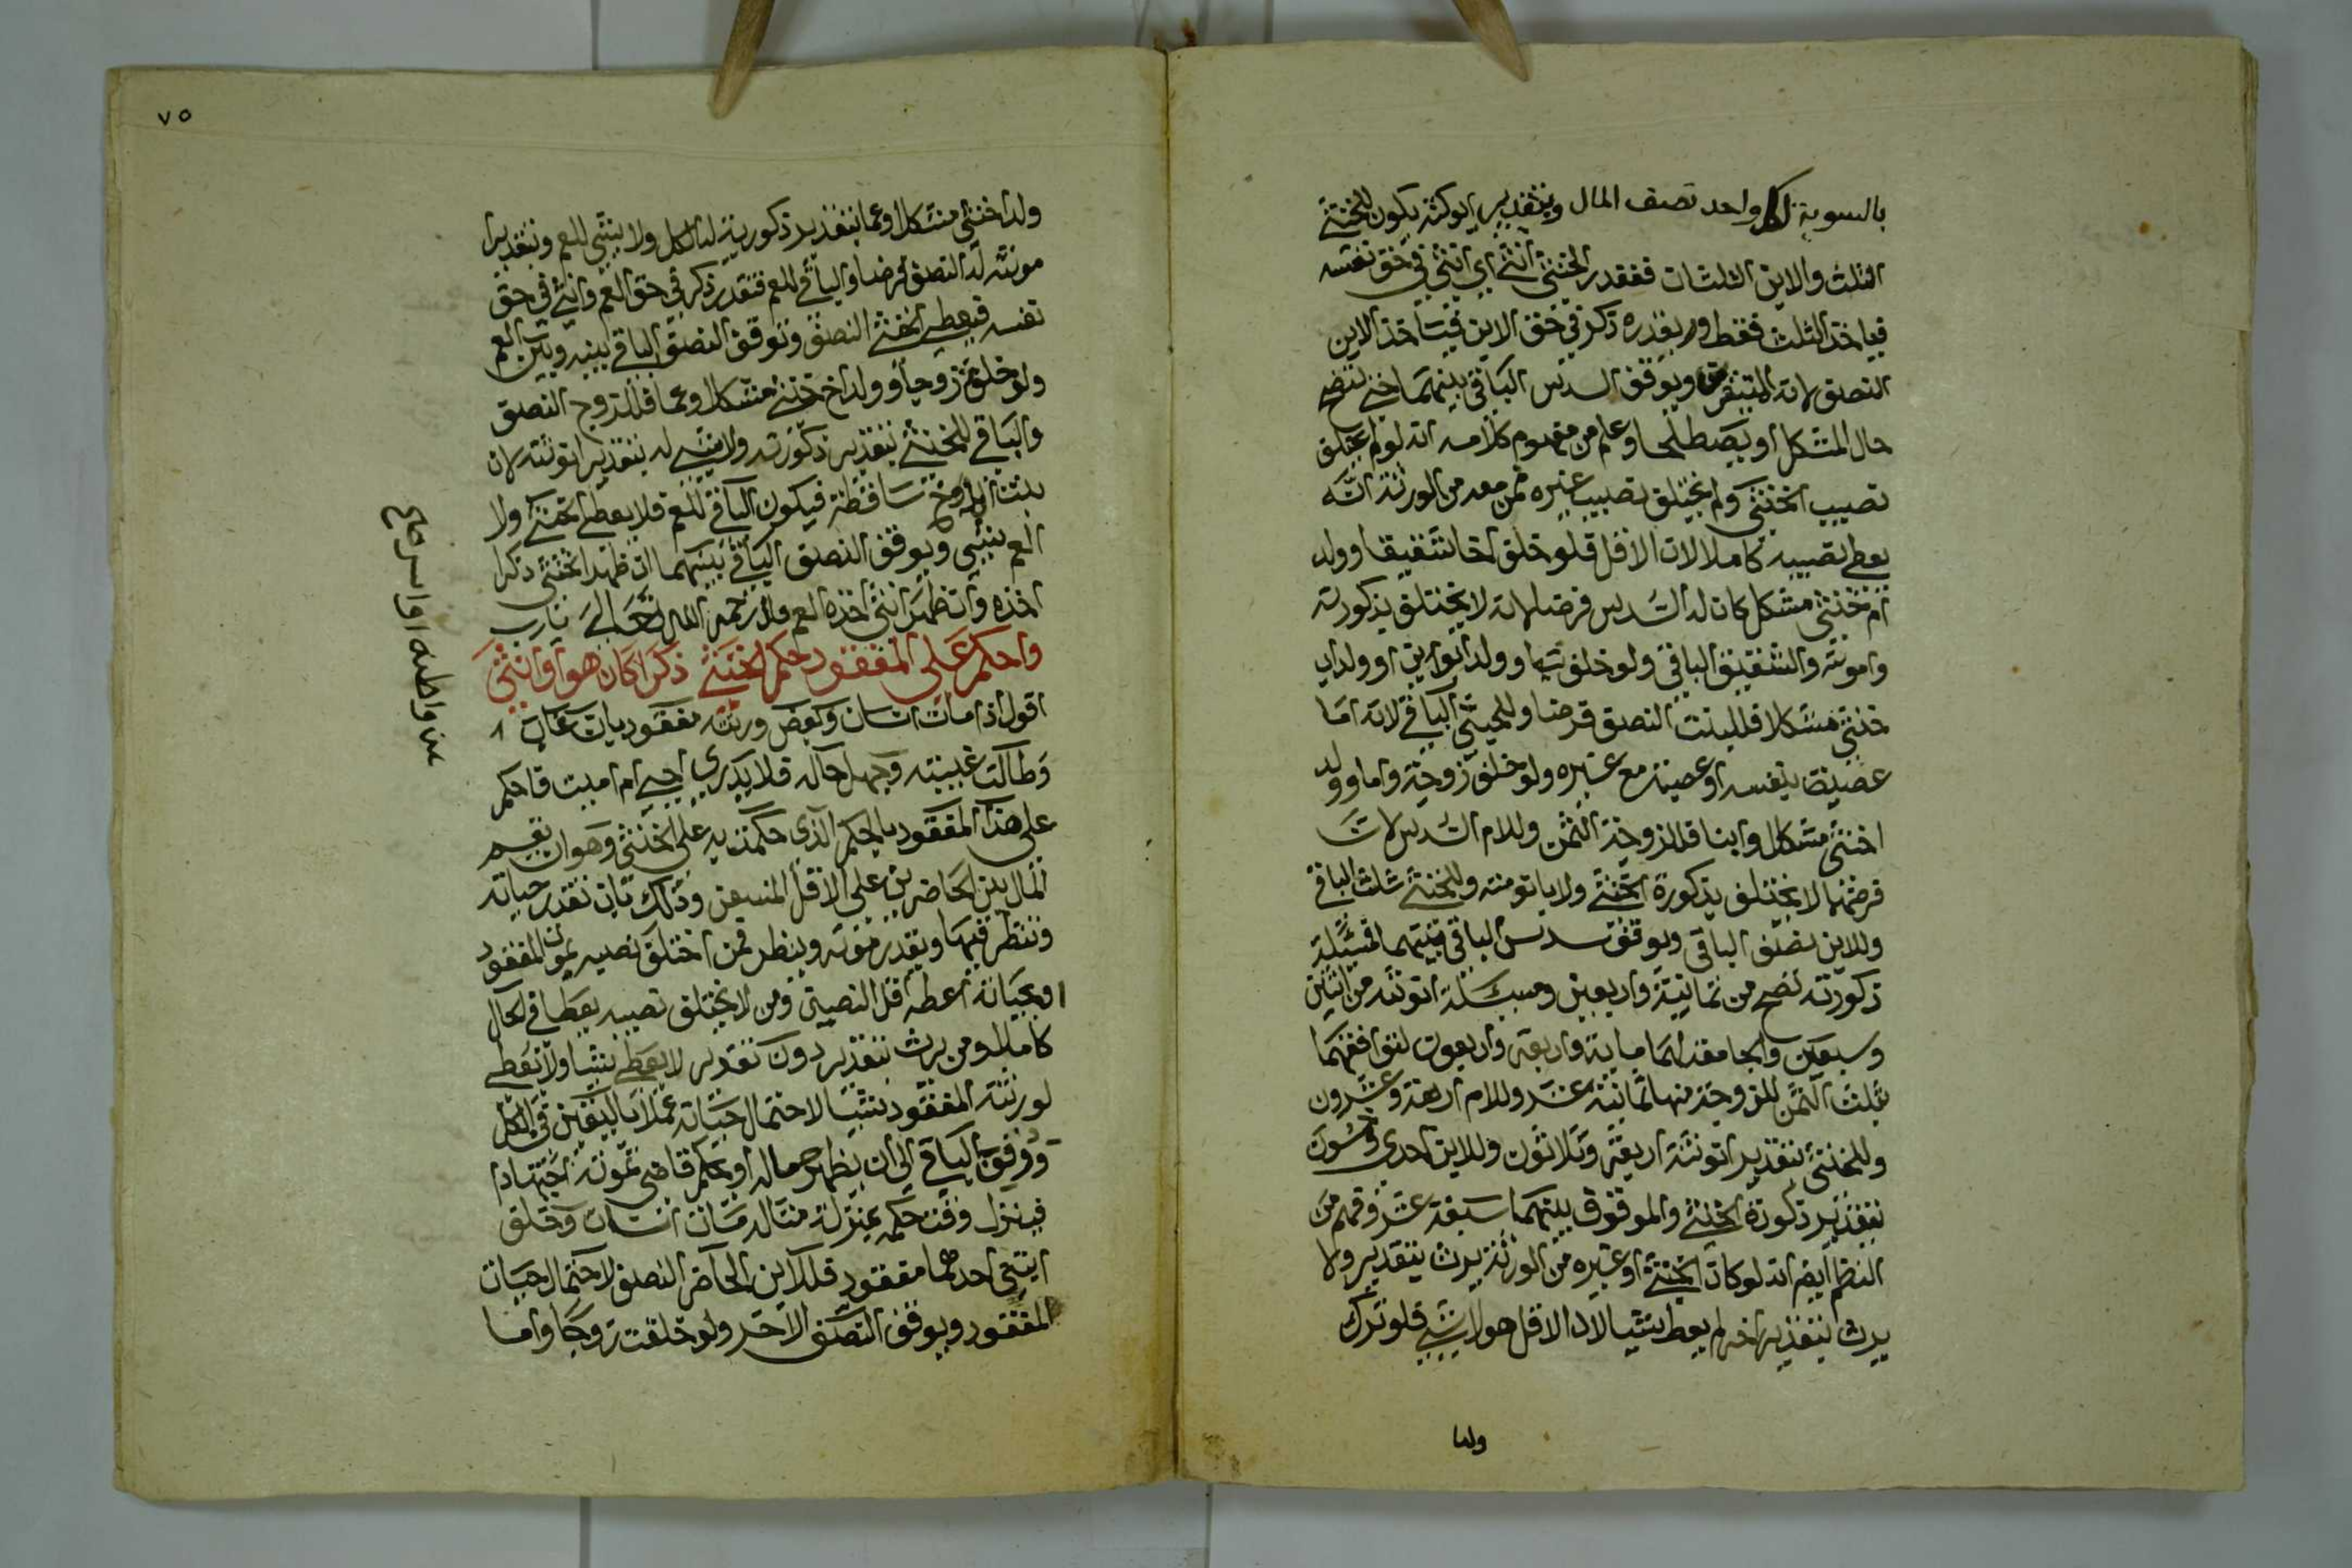 بالسوية لكل واحد نصف المال وبتقدير انوثته يكون للخنثى
الثلث والابن الثلثان فنقدر الخنثى انثى اي انثى في حق نفسه
فياخذ الثلث فقط ونقدره ذكر في حق الابن فياخذ الابن
النصف لانه المتيقن ويوقف السدس الباقي بينهما حتى يتضح
حال المشكل او يصطلحا وعلم من مفهوم كلامه انه لو لم يختلف
نصيب الخنثى ولم يختلف نصيب غيره ممن معه من الورثة انه
يعطى نصيبه كاملا لان الاقل فلو خلف اخا شقيقا وولد
ام خنثى مشكل كان له السدس فرضا لانه لا يختلف بذكورته
وانوثته والشقيق الباقي ولو خلف بنتا وولد ابوين او ولد اب
خنثى مشكلا فللبنت النصف فرضا وللخنثى الباقي لانه اما
عصبة بنفسه او عصبة مع غيره ولو خلف زوجة واما وولد
اخنثى مشكل وابنا فللزوجة الثمن وللام السدس لان
فرضهما لا يختلف بذكورة الخنثى ولا بانوثته وللخنثى ثلث الباقي
وللابن نصف الباقي ويوقف سدس الباقي بينهما فمسئلة
ذكورته تصح من ثمانية واربعين ومسئلة انوثته من اثنين
وسبعين والجامعة لهما ماية واربعة واربعون لتوافقهما
بثلث الثمن للزوجة منها ثمانية عشر وللام اربعة وعشرون
وللخنثى بتقدير انوثته اربعة وثلاثون وللابن احدى وخمسون
بتقدير ذكورة الخنثى والموقوف بينهما سبعة عشر وفهم من
النظم ايضا انه لو كان الخنثى او غيره من الورثة يرث بتقدير ولا
يرث بتقدير اخر لم يعط شيا لان الاقل هو لا شي فلو ترك
ولدا
٧٥
ولدا خنثى مشكلا وعما بتقدير ذكوريته له الكل ولا شي للعم وبتقدير
انوثته له النصف فرضا والباقي للعم فنقدر ذكر في حق العم وانثى في حق
نفسه فيعطى الخنثى النصف ونوقف النصف الباقي بينه وبين العم
ولو خلف زوجا وولد اخ خنثى مشكل وعما فللزوج النصف
والباقي للخنثى بتقدير ذكورته ولا شي له بتقدير انوثته لان
بنت الاخ ساقطة فيكون الباقي للعم فلا يعطى الخنثى ولا
العم شي ويوقف النصف الباقي بينهما ان ظهر الخنثى ذكرا
اخذه وان ظهر انثى اخذه العم قال رحمه الله تعالى
واحكم على المفقود حكم الخنثى ذكرا كان هو او انثى
اقول اذا مات انسان وبعض ورثته مفقود بان غاب
وطالت غيبته وجهل حاله فلا يدرى احي ام ميت فاحكم
على هذا المفقود بالحكم الذي حكمت به على الخنثى وهو ان تقسم
المال بين الحاضرين على الاقل المتيقن وذلك بان تقدر حياته
وننظر فيها ونقدر موته وينظر فمن اختلف نصيبه بموت المفقود
او بحياته اعطه اقل النصيبين ومن لا يختلف نصيبه يعطا في الحال
كاملا ومن يرث بتقدير دون تقدير لا يعطى شيا ولا تعطى
لورثة المفقود شيا لاحتمال حياته عملا باليقين في الكل
ووقف الباقي الى ان يظهر حاله او يحكم قاضي بموته اجتهادا
فينزل وقت حكمه بمنزلة مثاله مات انسان وخلف
ابنين احدهما مفقود فللابن الحاضر النصف لاحتمال حياة
المفقود ويوقف النصف الاخر ولو خلفت زوجا واما